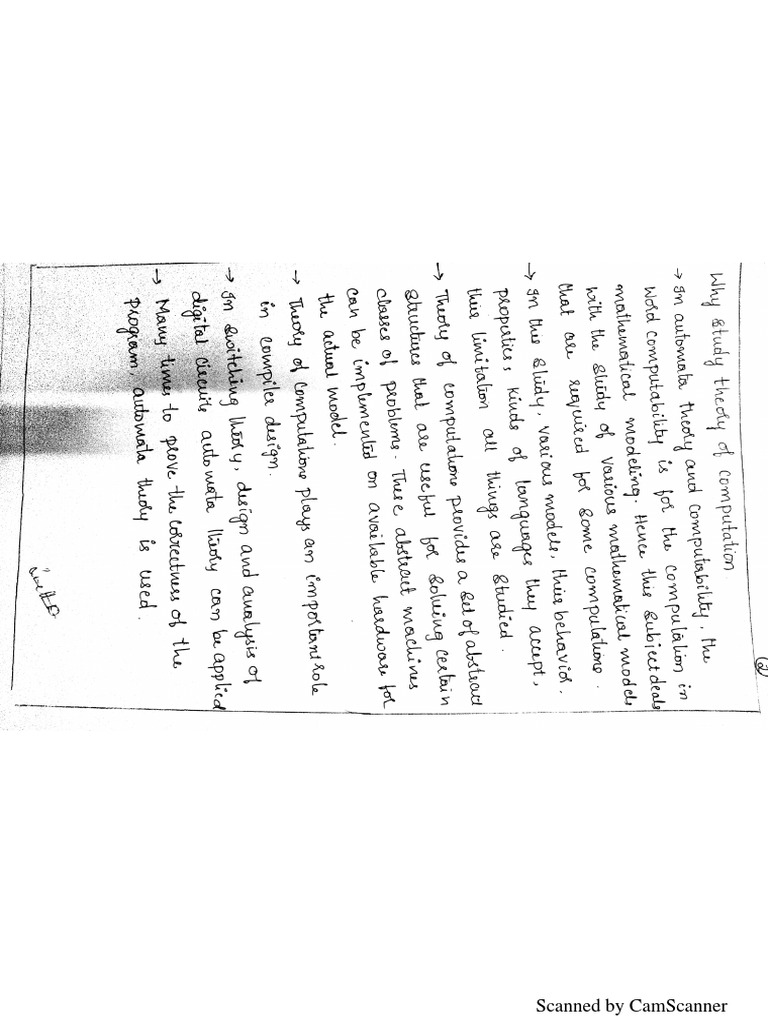 (2)
Why study theory of computation.
→ In automata theory and computability, the
word computability is for the computation in
mathematical modeling. Hence this subject deals
with the study of various mathematical models
that are required for some computations.
→ In this study, various models, their behavior,
properties, kinds of languages they accept,
their limitation all things are studied.
→ Theory of computations provides a set of abstract
structures that are useful for solving certain
classes of problems. These abstract machines
can be implemented on available hardware for
the actual model.
→ Theory of computations plays an important role
in compiler design.
→ In switching theory, design and analysis of
digital circuits automata theory can be applied
→ Many times to prove the correctness of the
program, automata theory is used.
Scanned by CamScanner